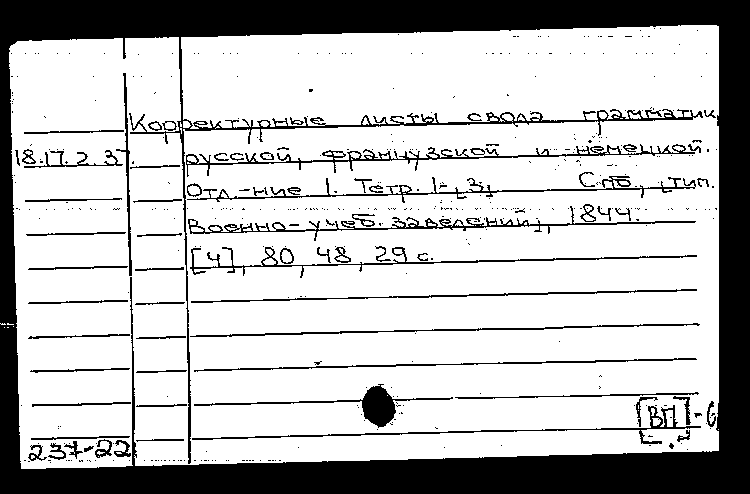 Корректурные листы свода грамматик,
18.17.2.37. русской, французской и немецкой.
Отд.-ние 1. Тетр. 1-[3] Спб, [тип.
Военно-учеб. заведений], 1844.
[4], 80, 48, 29 с.
[ВП]-6
237-22